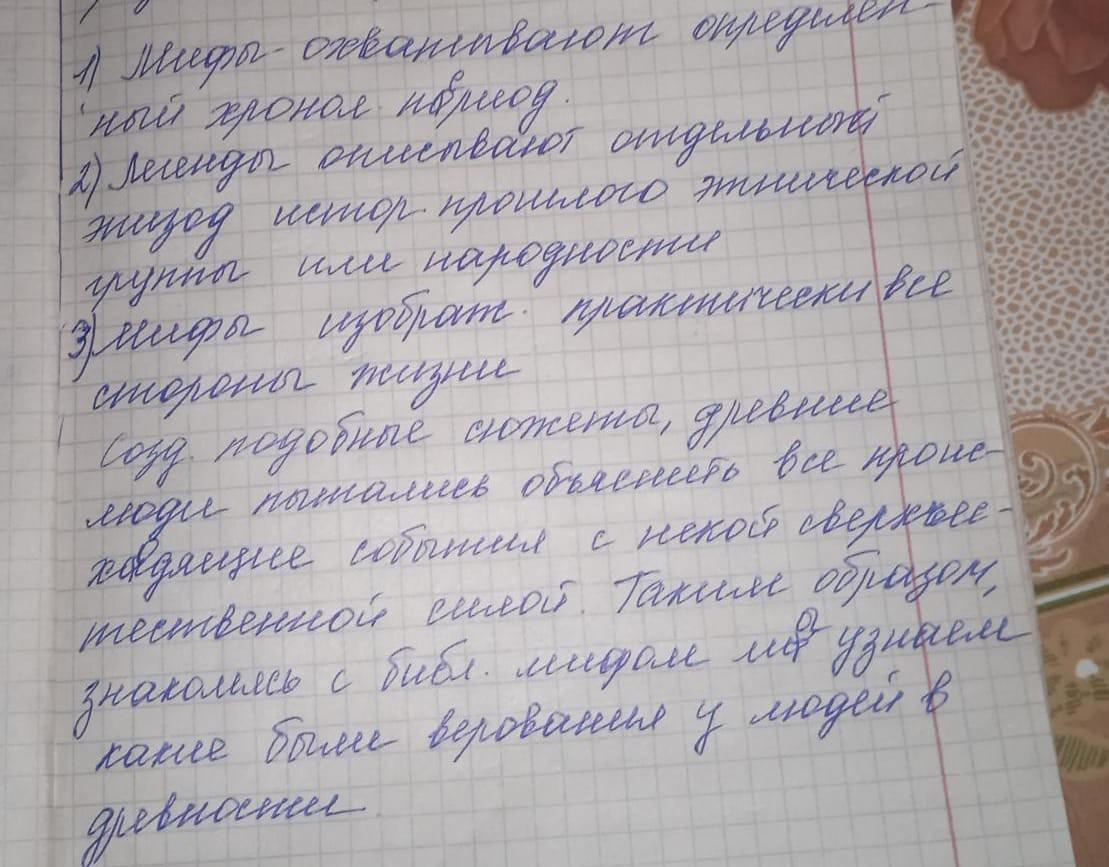 1) Мифы - охватывают определен-
ный хронол. период.
2) Легенды описывают отдельный
эпизод истор. прошлого этнической
группы или народности
3) Мифы изображ. практически все
стороны жизни
Созд. подобные сюжеты, древние
люди пытались объяснить все проис-
ходящие события с некой сверхъес-
тественной силой. Таким образом,
знакомясь с библ. мифом узнаем
какие были верования у людей в
древности.